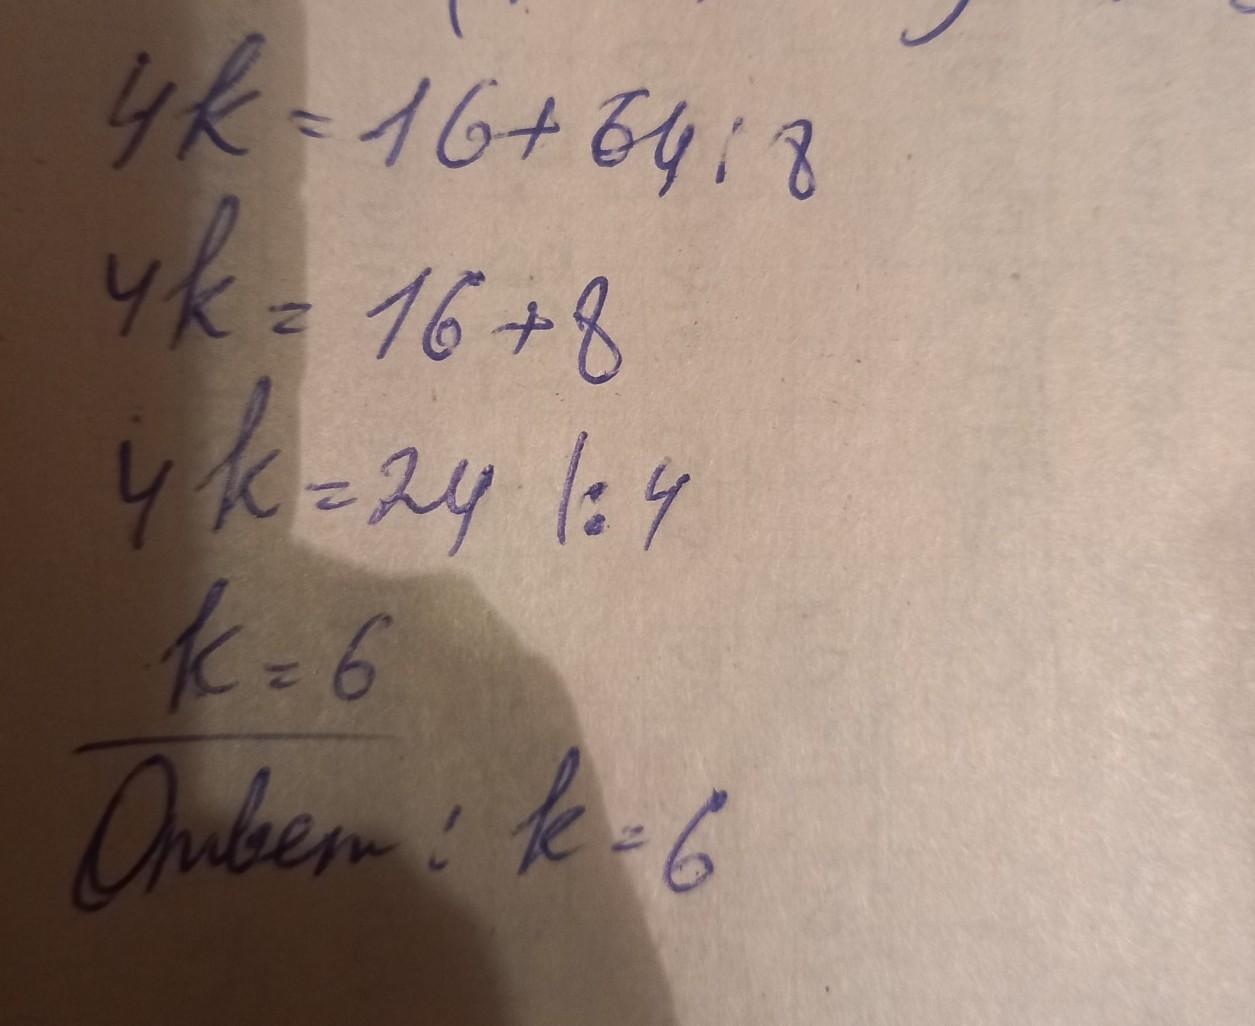 4k = 16 + 64 : 8
4k = 16 + 8
4k = 24 |: 4
k = 6
Ответ : k = 6